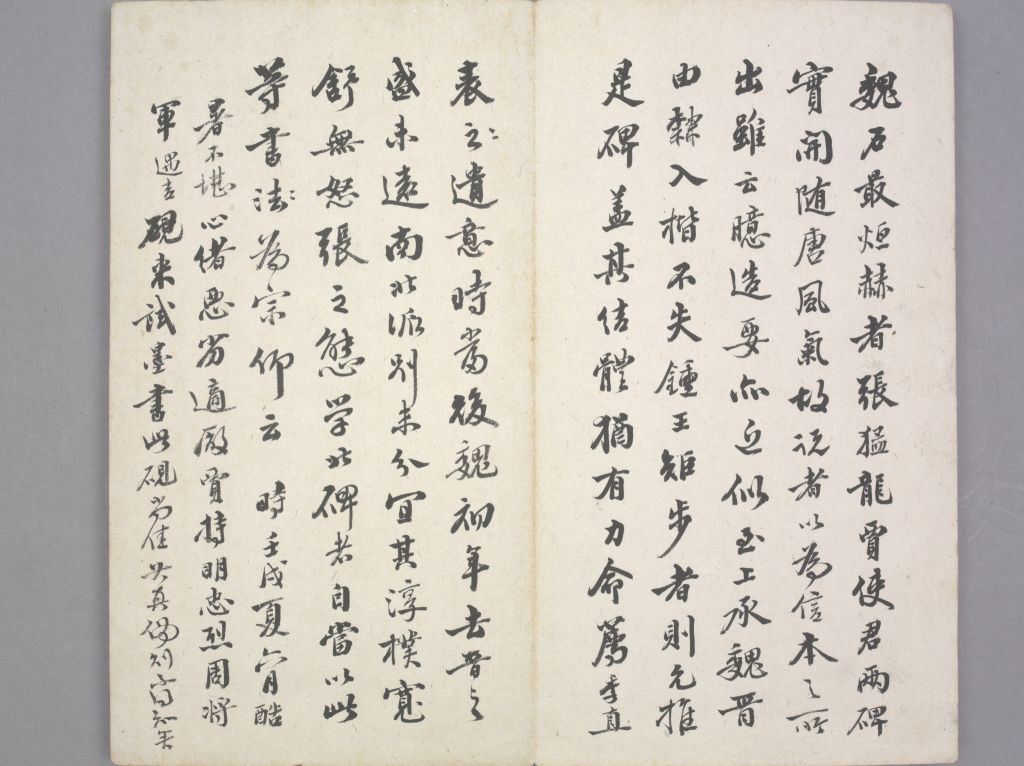 魏石最烜赫者張猛龍賈使君兩碑
實開隋唐風氣故說者以為信本之所
出雖云臆造要亦近似至上承魏晋
由隸入楷不失鍾王矩步者則允推
是碑蓋其結體猶有力命篤李直
表之之遺意時當後魏初年去晋之
盛未遠南北派別未分宜其淳樸寬
舒無怒張之態学北碑者自當以此
等書法為宗仰云 時壬戌夏六月酷
暑不堪心緒惡劣適厰賈持明忠烈周將
軍遇吉硯来試墨書此硯尚佳